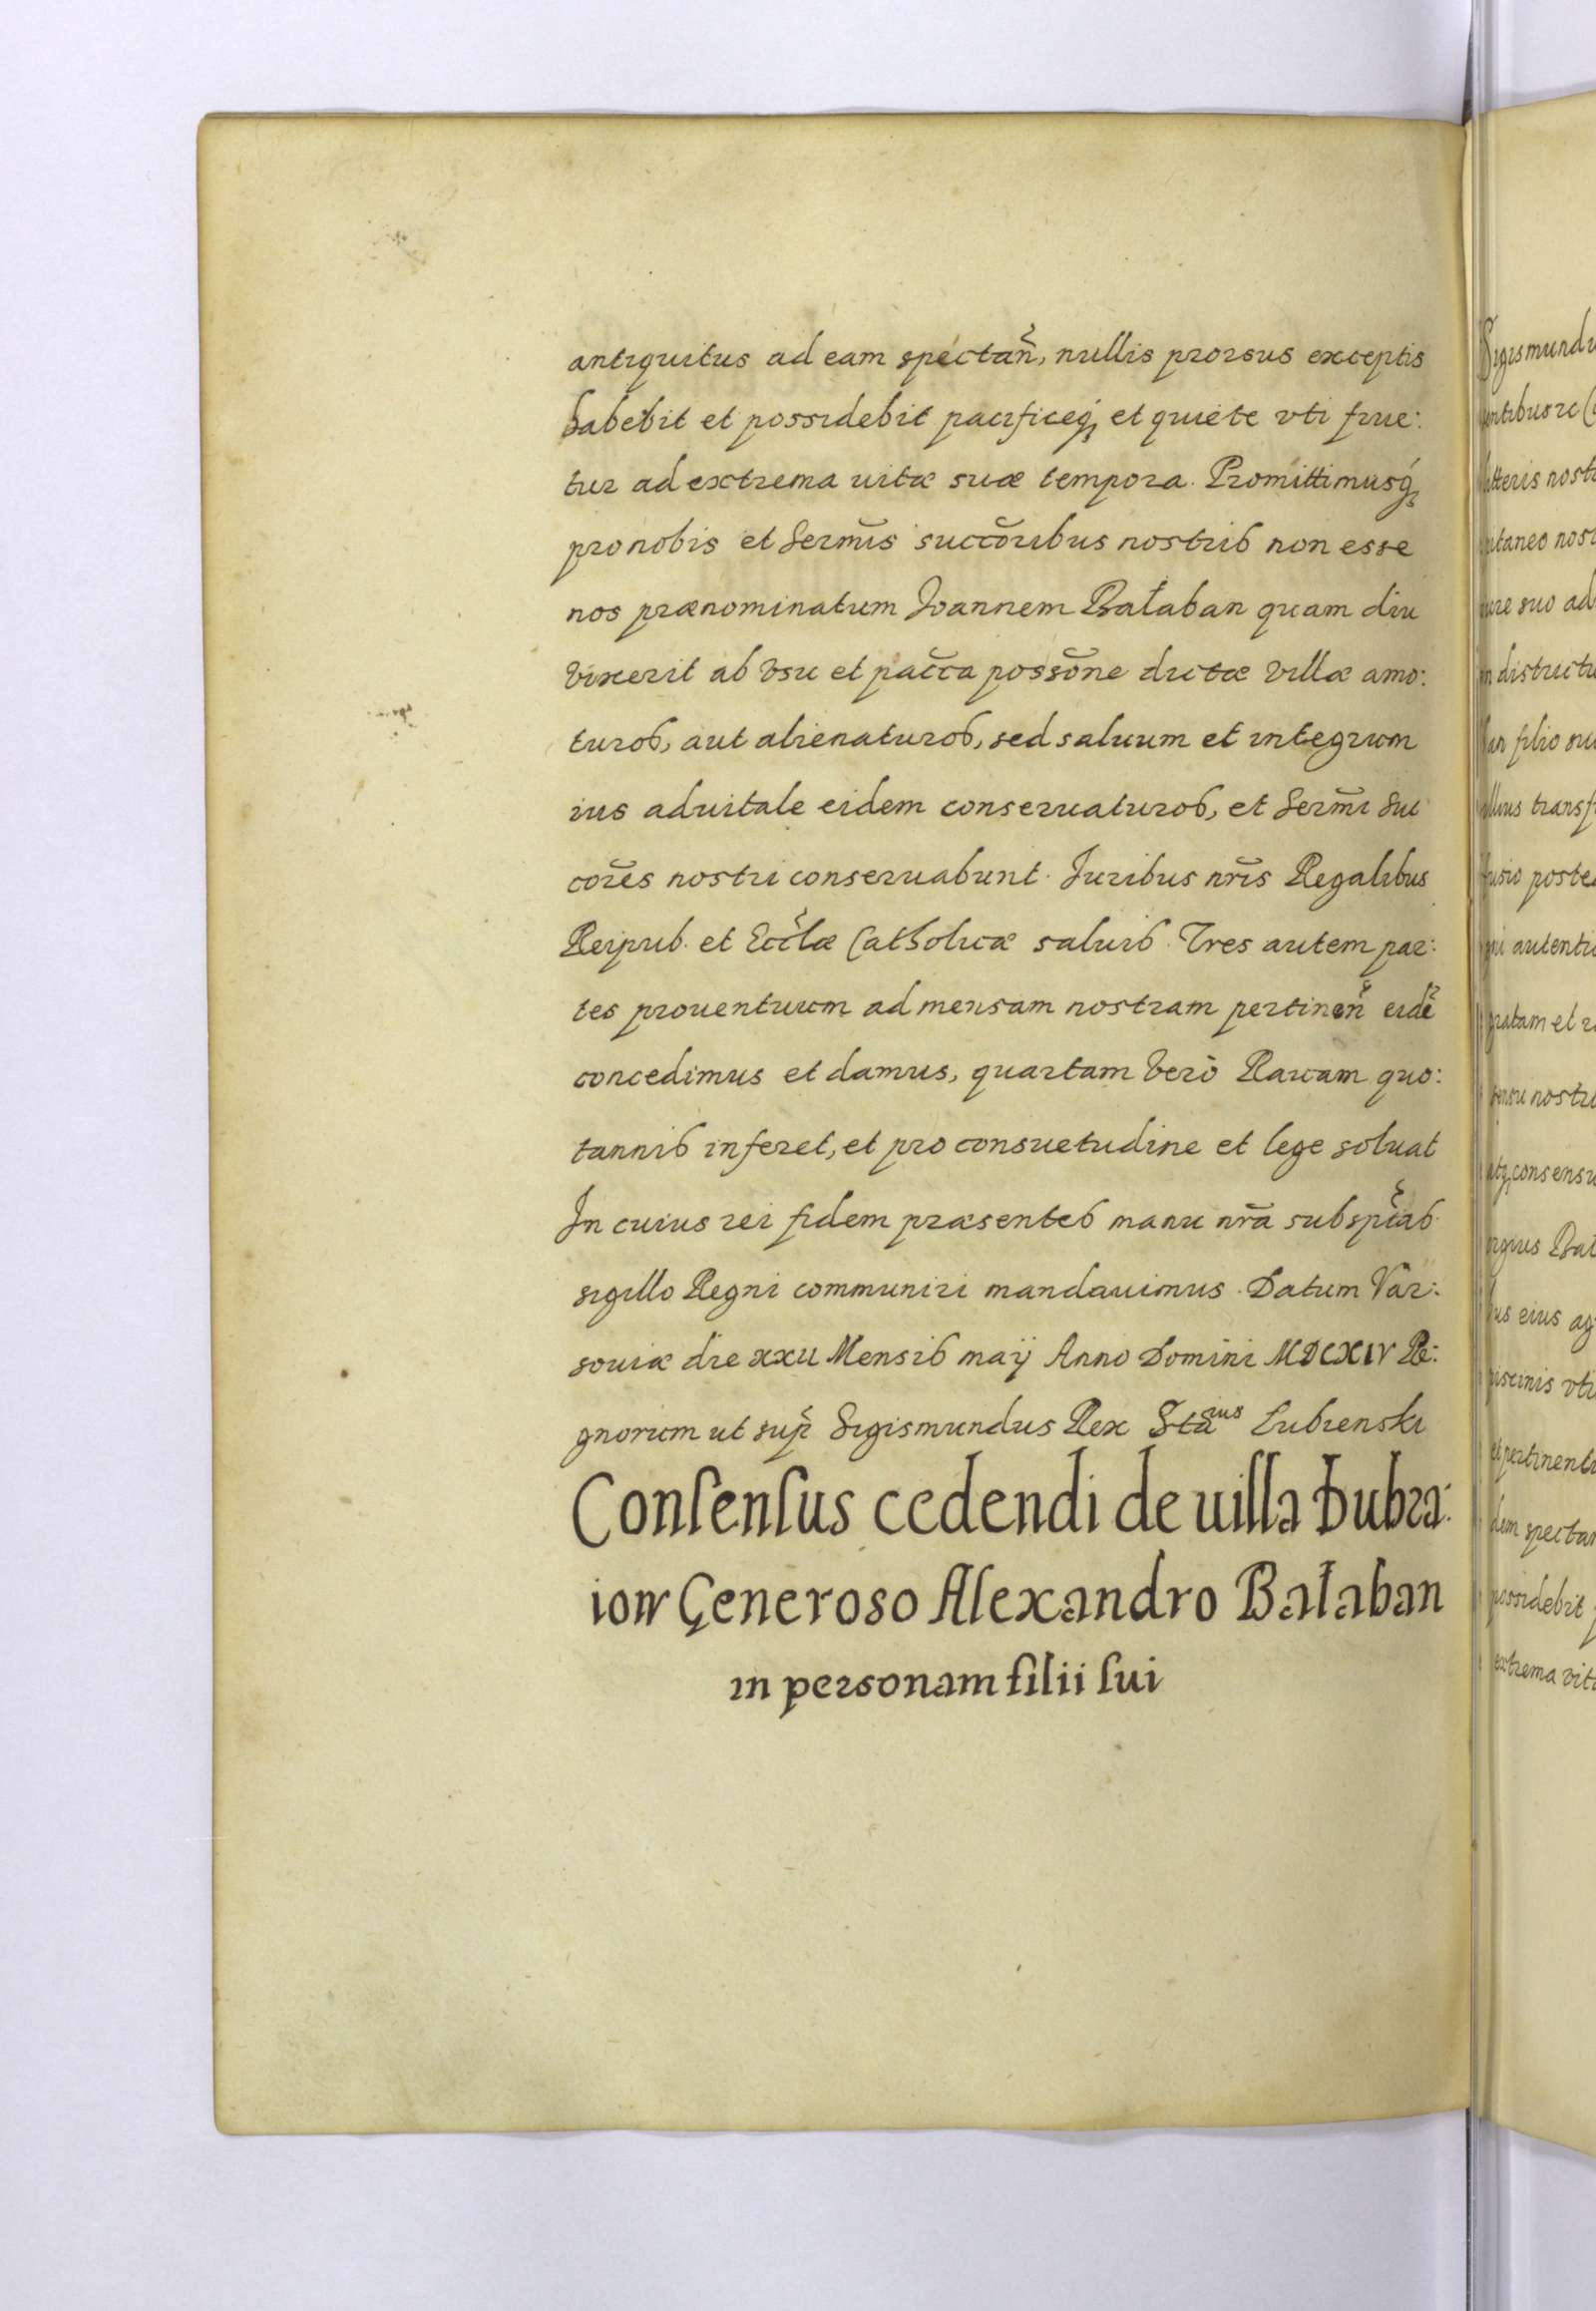 antiquitus ad eam spectan̄, nullis prorsus exceptis
habebit et possidebit pacificeq́ꝫ et quiete vti frue:
tur ad extrema uitæ suæ tempora. Promittimusq́ꝫ
pro nobis et Serm̄is succōribus nostris non esse
nos prænominatum Joannem Bałaban quam diu
vixerit ab vsu et pac̄ca possōne dictæ villæ amo:
turos, aut alienaturos, sed saluum et integrum
ius aduitale eidem conseruaturos, et Serm̄i Suc
cor̄es nostri conseruabunt. Juribus nr̄is Regalibus
Reipub. et Eccl̄æ Catholicæ saluis. Tres autem par:
tes prouentuum ad mensam nostram pertinen̄ eidē
concedimus et damus, quartam verò Rauam quo:
tannis inferet, et pro consuetudine et lege soluat
In cuius rei fidem præsentes manu nr̄a subsp̄tas
sigillo Regni communiri mandauimus. Datum Var:
souiæ die xxii Mensis maij Anno Domini MDCXIV Re:
gnorum ut sup̄ Sigismundus Rex Stāius Lubienski
Consensus cedendi de uilla Dubra:
iow Generoso Alexandro Bałaban
in personam filii sui
Sigismundu
entibus
litteris nost
pitaneo nost
iure suo ad
in districtu
ban filio su
illius transf
poste
autenti
gratam et r
sensu nostr
atqꝫ consensu
orgius Bał
ius eius ag
piscinis vti
et pertinenti
dem spectan
possidebit
extrema vitæ